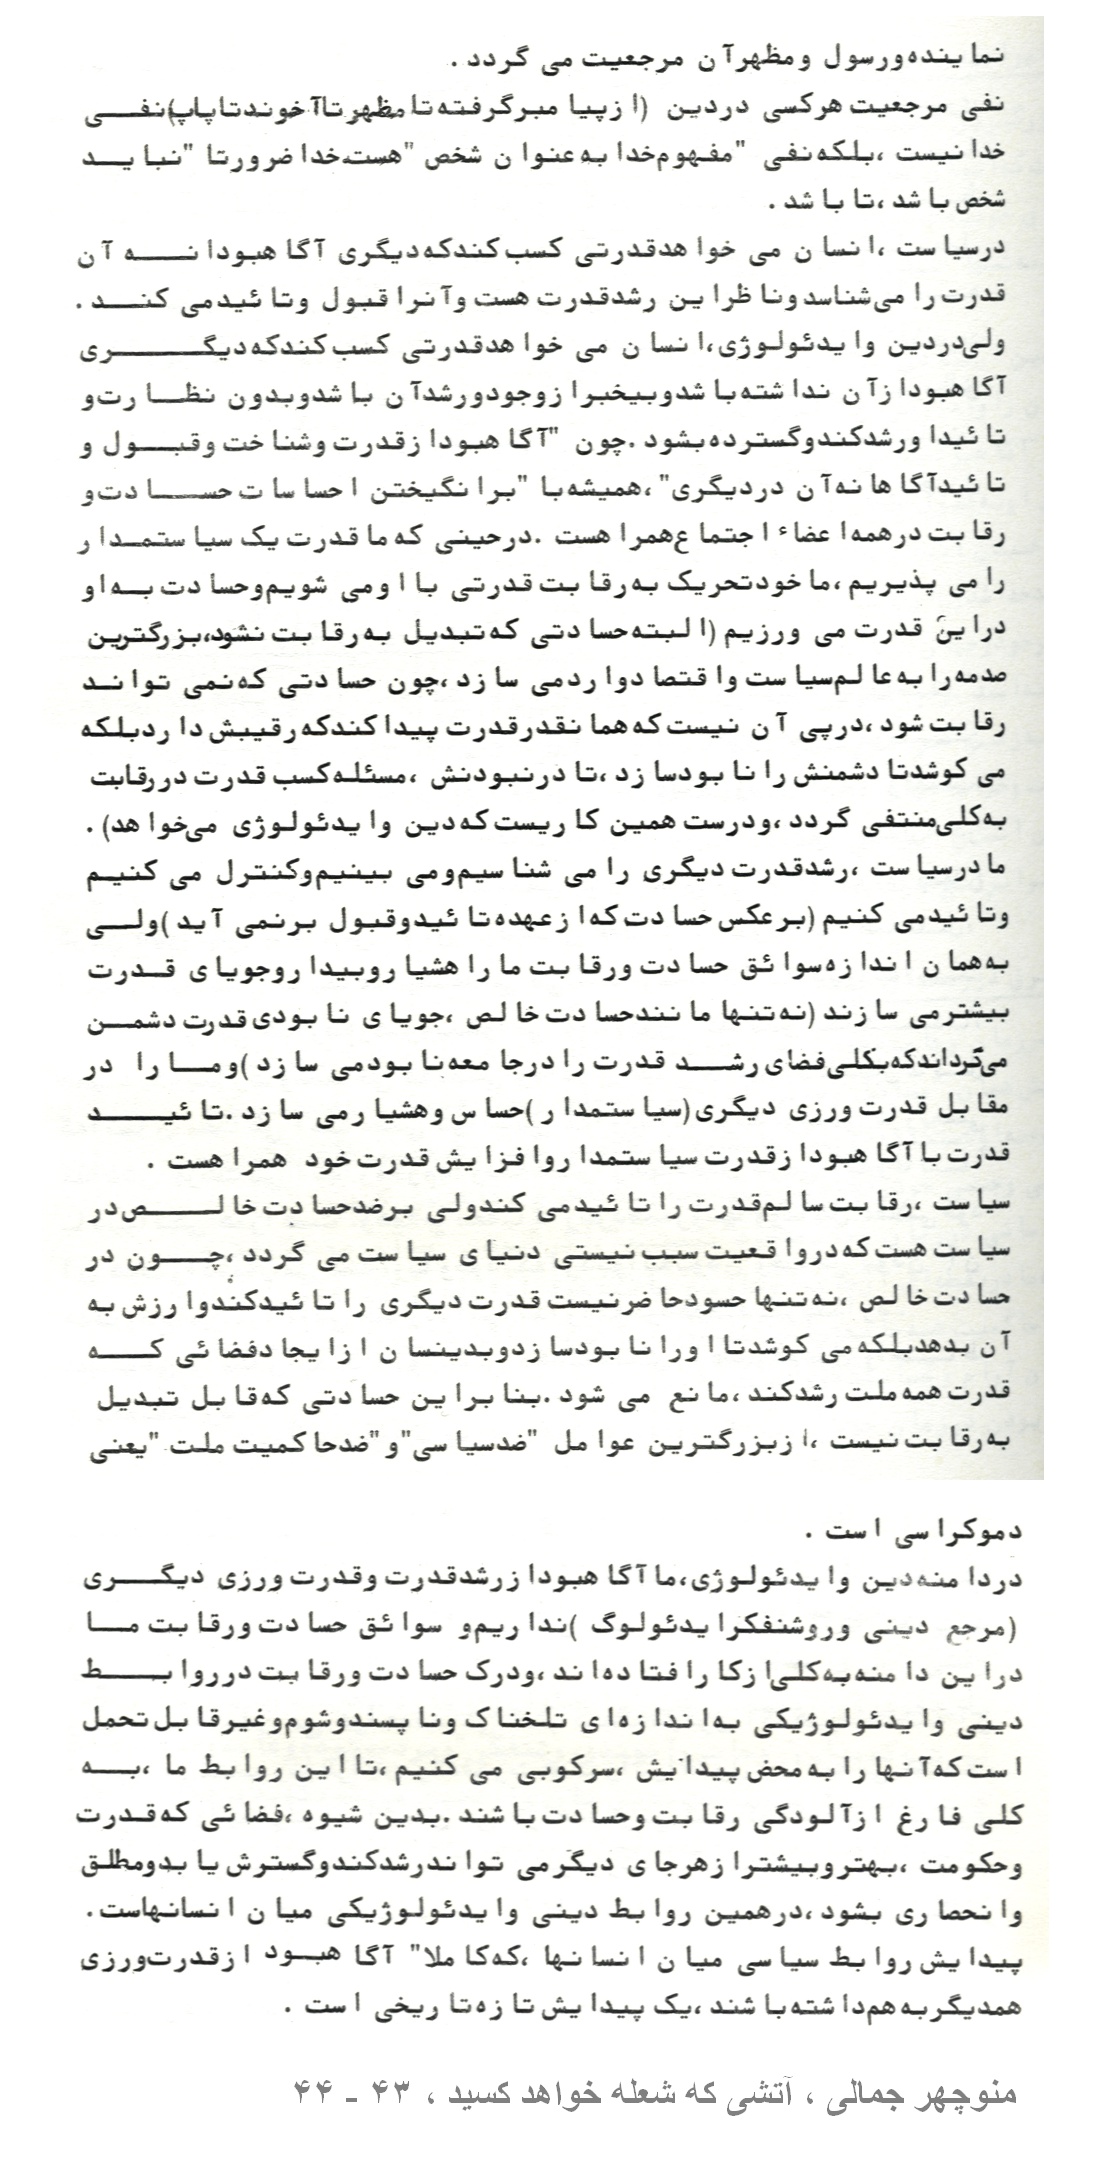 نماینده ورسول ومظهرآن مرجعیت می گردد .
نفی مرجعیت هرکسی دردین (ازپیامبرگرفته تا مظهرتاآخوندتاپاپ)نفی
خدانیست ،بلکه نفی "مفهوم خدا به عنوان شخص "هست.خدا ضرورتا "نباید
شخص باشد ،تا باشد .
درسیاست ،انسان می خواهدقدرتی کسب کندکه دیگری آگاهبودانه آن
قدرت را می شناسد وناظراین رشدقدرت هست وآنرا قبول وتائیدمی کند .
ولی دردین وایدئولوژی،انسان می خواهدقدرتی کسب کندکه دیگری
آگاهبودازآن نداشته باشدوبیخبرازوجودورشدآن باشدوبدون نظارت و
تائیداو رشدکندوگسترده بشود .چون "آگاهبودازقدرت وشناخت وقبول و
تائیدآگاهانه آن دردیگری" ،همیشه با "برانگیختن احساسات حسادت و
رقابت درهمه اعضاء اجتماع همراهست .درحینی که ما قدرت یک سیاستمدار
را می پذیریم ،ما خودتحریک به رقابت قدرتی با اومی شویم وحسادت به او
دراین قدرت می ورزیم (البته حسادتی که تبدیل به رقابت نشود،بزرگترین
صدمه را به عالم سیاست واقتصادواردمی سازد ،چون حسادتی که نمی تواند
رقابت شود ،درپی آن نیست که همانقدرقدرت پیداکندکه رقیبش داردبلکه
می کوشدتا دشمنش را نابودسازد ،تا درنبودنش ،مسئله کسب قدرت دررقابت
به کلی منتفی گردد ،ودرست همین کاریست که دین وایدئولوژی می خواهد) .
ما درسیاست ،رشدقدرت دیگری را می شناسیم ومی بینیم وکنترل می کنیم
وتائیدمی کنیم (برعکس حسادت که ازعهده تائیدوقبول برنمی آید)ولی
به همان اندازه سوائق حسادت ورقابت ما را هشیاروبیداروجویای قدرت
بیشترمی سازند (نه تنها مانندحسادت خالص ،جویای نابودی قدرت دشمن
می گرداندکه بکلی فضای رشد قدرت را درجامعه نابودمی سازد)وما را در
مقابل قدرت ورزی دیگری(سیاستمدار)حساس وهشیارمی سازد .تائید
قدرت با آگاهبودازقدرت سیاستمداروافزایش قدرت خود همراهست .
سیاست ،رقابت سالم قدرت را تائیدمی کندولی برضدحسادت خالص در
سیاست هست که درواقعیت سبب نیستی دنیای سیاست می گردد ،چون در
حسادت خالص ،نه تنها حسودحاضرنیست قدرت دیگری را تائیدکندوارزش به
آن بدهدبلکه می کوشدتا اورا نابودسازدوبدینسان ازایجادفضائی که
قدرت همه ملت رشدکند ،مانع می شود .بنابراین حسادتی که قابل تبدیل
به رقابت نیست ،ازبزرگترین عوامل "ضدسیاسی"و"ضدحاکمیت ملت "یعنی
دموکراسی است .
دردامنه دین وایدئولوژی،ما آگاهبودازرشدقدرت وقدرت ورزی دیگری
(مرجع دینی وروشنفکرایدئولوگ)نداریم و سوائق حسادت ورقابت ما
دراین دامنه به کلی ازکارافتاده اند ،ودرک حسادت ورقابت درروابط
دینی وایدئولوژیکی به اندازه ای تلخناک وناپسندوشوم وغیرقابل تحمل
است که آنها را به محض پیدایش ،سرکوبی می کنیم ،تا این روابط ما ،به
کلی فارغ ازآلودگی رقابت وحسادت باشند .بدین شیوه ،فضائی که قدرت
وحکومت ،بهتروبیشترازهرجای دیگرمی تواندرشدکندوگسترش یابدومطلق
وانحصاری بشود ،درهمین روابط دینی وایدئولوژیکی میان انسانهاست.
پیدایش روابط سیاسی میان انسانها ،که کاملا" آگاهبود ازقدرت ورزی
همدیگربه هم داشته باشند ،یک پیدایش تازه تاریخی است .
منوچهر جمالی ، آتشی که شعله خواهد کسید ، ۴۳ - ۴۴